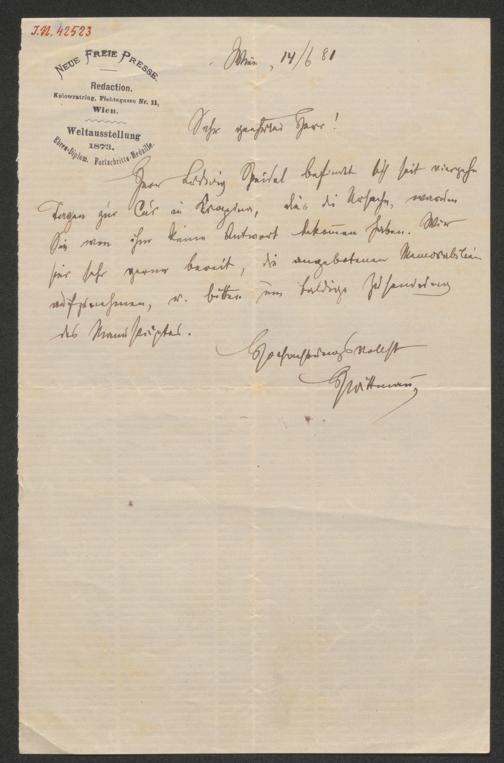 I.N. 42523
NEUE FREIE PRESSE.
Redaction.
Kolowratring, Fichtegasse Nr. 11,
Wien.
Weltausstellung
1873.
Ehren-Diplom. Fortschritts-Medaille.
Wien, 14/6 81
Sehr geehrter Herr!
Herr Ludwig Speidel befindet sich seit vierzehn
Tagen zur Cur in Krapina, dies die Ursache, warum
Sie von ihm keine Antwort bekommen haben. Wir
sind sehr gerne bereit, die angebotenen Memorabilien
aufzunehmen, u. bitten um baldige Zusendung
des Manuskriptes.
Hochachtungsvollst